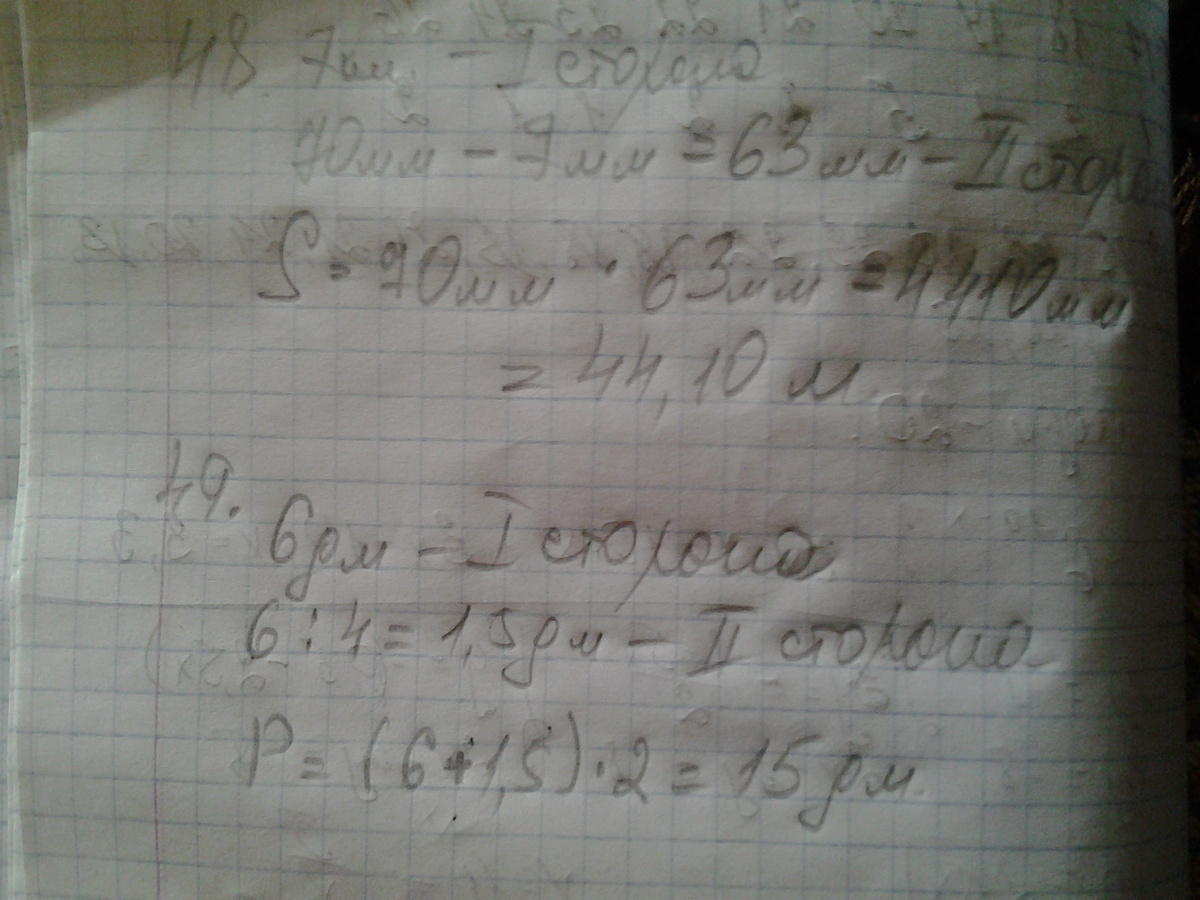 48 7см - I сторона
70мм - 7мм = 63мм - II сторо
S = 70мм · 63мм = 4410мм
= 44,10 м
49.
6дм - I сторона
6 : 4 = 1,5дм - II сторона
P = (6+1,5)·2 = 15 дм.